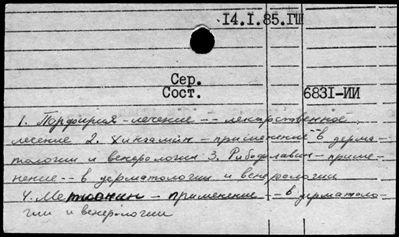 14.I.85.ГШ
Сер.
Сост. 6831-ИИ
1. Порфирия - лечение -- лекарственное
лечение 2. Хингамин - применение -- в дерма-
тологии и венерологии 3. Рибофлавин - приме-
нение -- в дерматологии и венерологии
4. Метионин - применение -- в дерматоло-
гии и венерологии